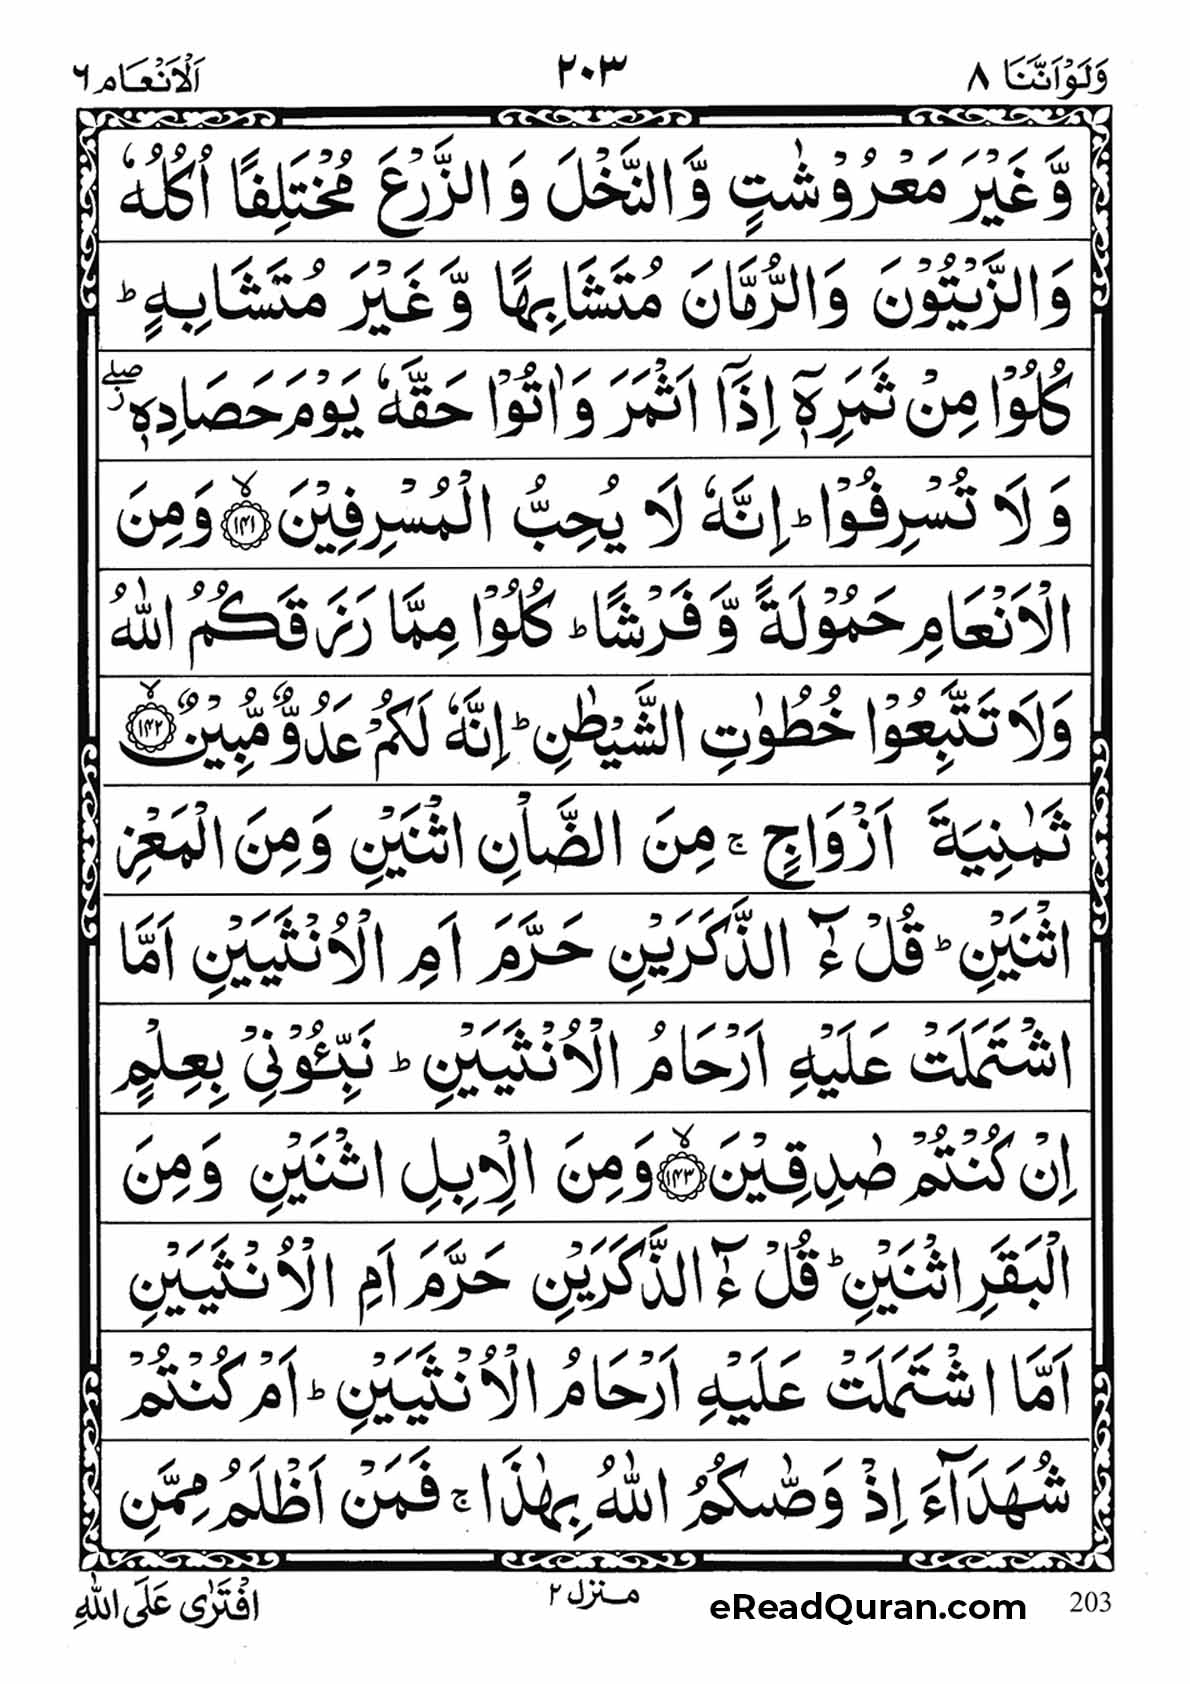 وَلَوْاَنَّنَا ٨
٢٠٣
اَلْاَنْعَام ٦
وَّ غَيْرَ مَعْرُوْشٰتٍ وَّالنَّخْلَ وَ الزَّرْعَ مُخْتَلِفًا اُكُلُهٗ
وَالزَّيْتُوْنَ وَالرُّمَّانَ مُتَشَابِهًا وَّ غَيْرَ مُتَشَابِهٍ ؕ
كُلُوْا مِنْ ثَمَرِهٖۤ اِذَاۤ اَثْمَرَ وَ اٰتُوْا حَقَّهٗ يَوْمَ حَصَادِهٖ ۖز
وَ لَا تُسْرِفُوْا ؕ اِنَّهٗ لَا يُحِبُّ الْمُسْرِفِيْنَ ۙ‏﴿۱۴۱﴾ وَمِنَ
الْاَنْعَامِ حَمُوْلَةً وَّ فَرْشًا ؕ كُلُوْا مِمَّا رَزَقَكُمُ اللّٰهُ
وَلَا تَتَّبِعُوْا خُطُوٰتِ الشَّيْطٰنِ ؕ اِنَّهٗ لَكُمْ عَدُوٌّ مُّبِيْنٌ ۙ‏﴿۱۴۲﴾
ثَمٰنِيَةَ اَزْوَاجٍ ۚ مِنَ الضَّاْنِ اثْنَيْنِ وَمِنَ الْمَعْزِ
اثْنَيْنِ ؕ قُلْ ءٰٓالذَّكَرَيْنِ حَرَّمَ اَمِ الْاُنْثَيَيْنِ اَمَّا
اشْتَمَلَتْ عَلَيْهِ اَرْحَامُ الْاُنْثَيَيْنِ ؕ نَبِّـُٔوْنِيْ بِعِلْمٍ
اِنْ كُنْتُمْ صٰدِقِيْنَ ۙ‏﴿۱۴۳﴾ وَمِنَ الْاِبِلِ اثْنَيْنِ وَمِنَ
الْبَقَرِ اثْنَيْنِ ؕ قُلْ ءٰٓالذَّكَرَيْنِ حَرَّمَ اَمِ الْاُنْثَيَيْنِ
اَمَّا اشْتَمَلَتْ عَلَيْهِ اَرْحَامُ الْاُنْثَيَيْنِ ؕ اَمْ كُنْتُمْ
شُهَدَآءَ اِذْ وَصّٰىكُمُ اللّٰهُ بِهٰذَا ۚ فَمَنْ اَظْلَمُ مِمَّنِ
203
eReadQuran.com
منزل ٢
افْتَرٰى عَلَى اللّٰهِ